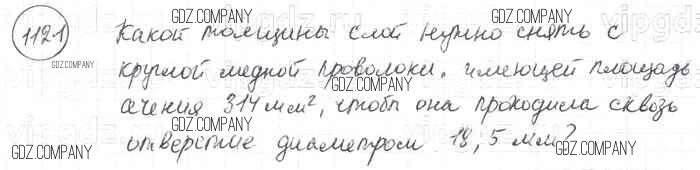 GDZ.COMPANY
1121 Какой толщины слой нужно снять с
GDZ.COMPANY GDZ.COMPANY
круглой медной проволоки, имеющей площадь
GDZ.COMPANY
сечения 314 мм², чтобы она проходила сквозь
GDZ.COMPANY GDZ.COMPANY
отверстие диаметром 18,5 мм?
GDZ.COMPANY GDZ.COMPANY